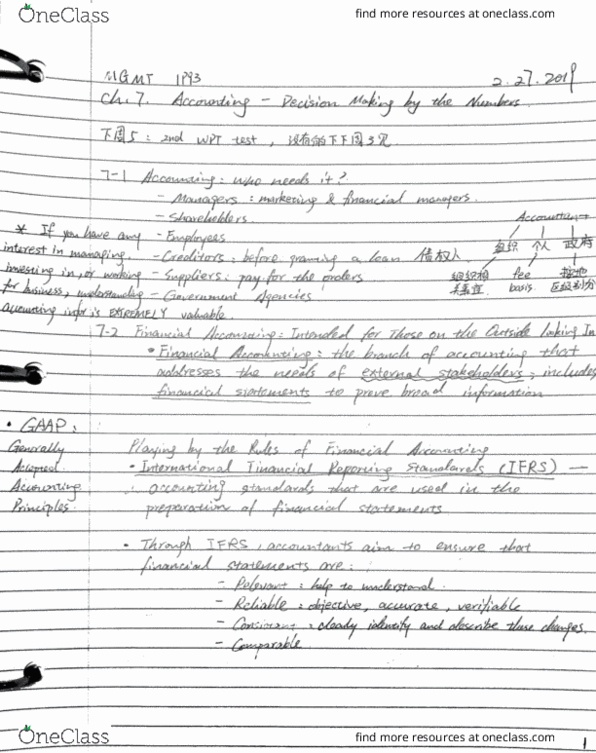 OneClass
find more resources at oneclass.com
MGMT 1P93
2.27.2019
Ch.7. Accounting - Decision Making by the Numbers.
下周5: 2nd WPT test,
7-1 Accounting: who needs it?
- Managers: marketing & financial managers.
- Shareholders.
Accountant
* If you have any
- Employees
组织 个人 政府
interest in managing,
- Creditors: before granning a loan 债权人.
investing in, or working
- Suppliers: pay for the orders
fee basis.
for business, understanding
- Government Agencies
accounting infor is EXTREMELY valuable.
7-2 Financial Accounting: Intended for Those on the Outside Looking In
• Financial Accounting: the branch of accounting that
addresses the needs of external stakeholders; includes
financial statements to prove broad information
• GAAP:
Generally
Playing by the Rules of Financial Accounting
Accepted
• International Financial Reporting Standards (IFRS) —
Accounting
: accounting standards that are used in the
Principles.
preparation of financial statements
• Through IFRS, accountants aim to ensure that
financial statements are:
- Relevant: help to understand.
- Reliable: objective, accurate, verifiable
- Consistent: clearly identify and describe these changes.
- Comparable.
OneClass
find more resources at oneclass.com
1